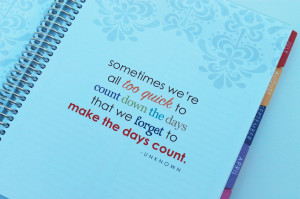 sometimes we're
all too quick to
count down the days
that we forget to
make the days count.
-UNKNOWN
APRIL